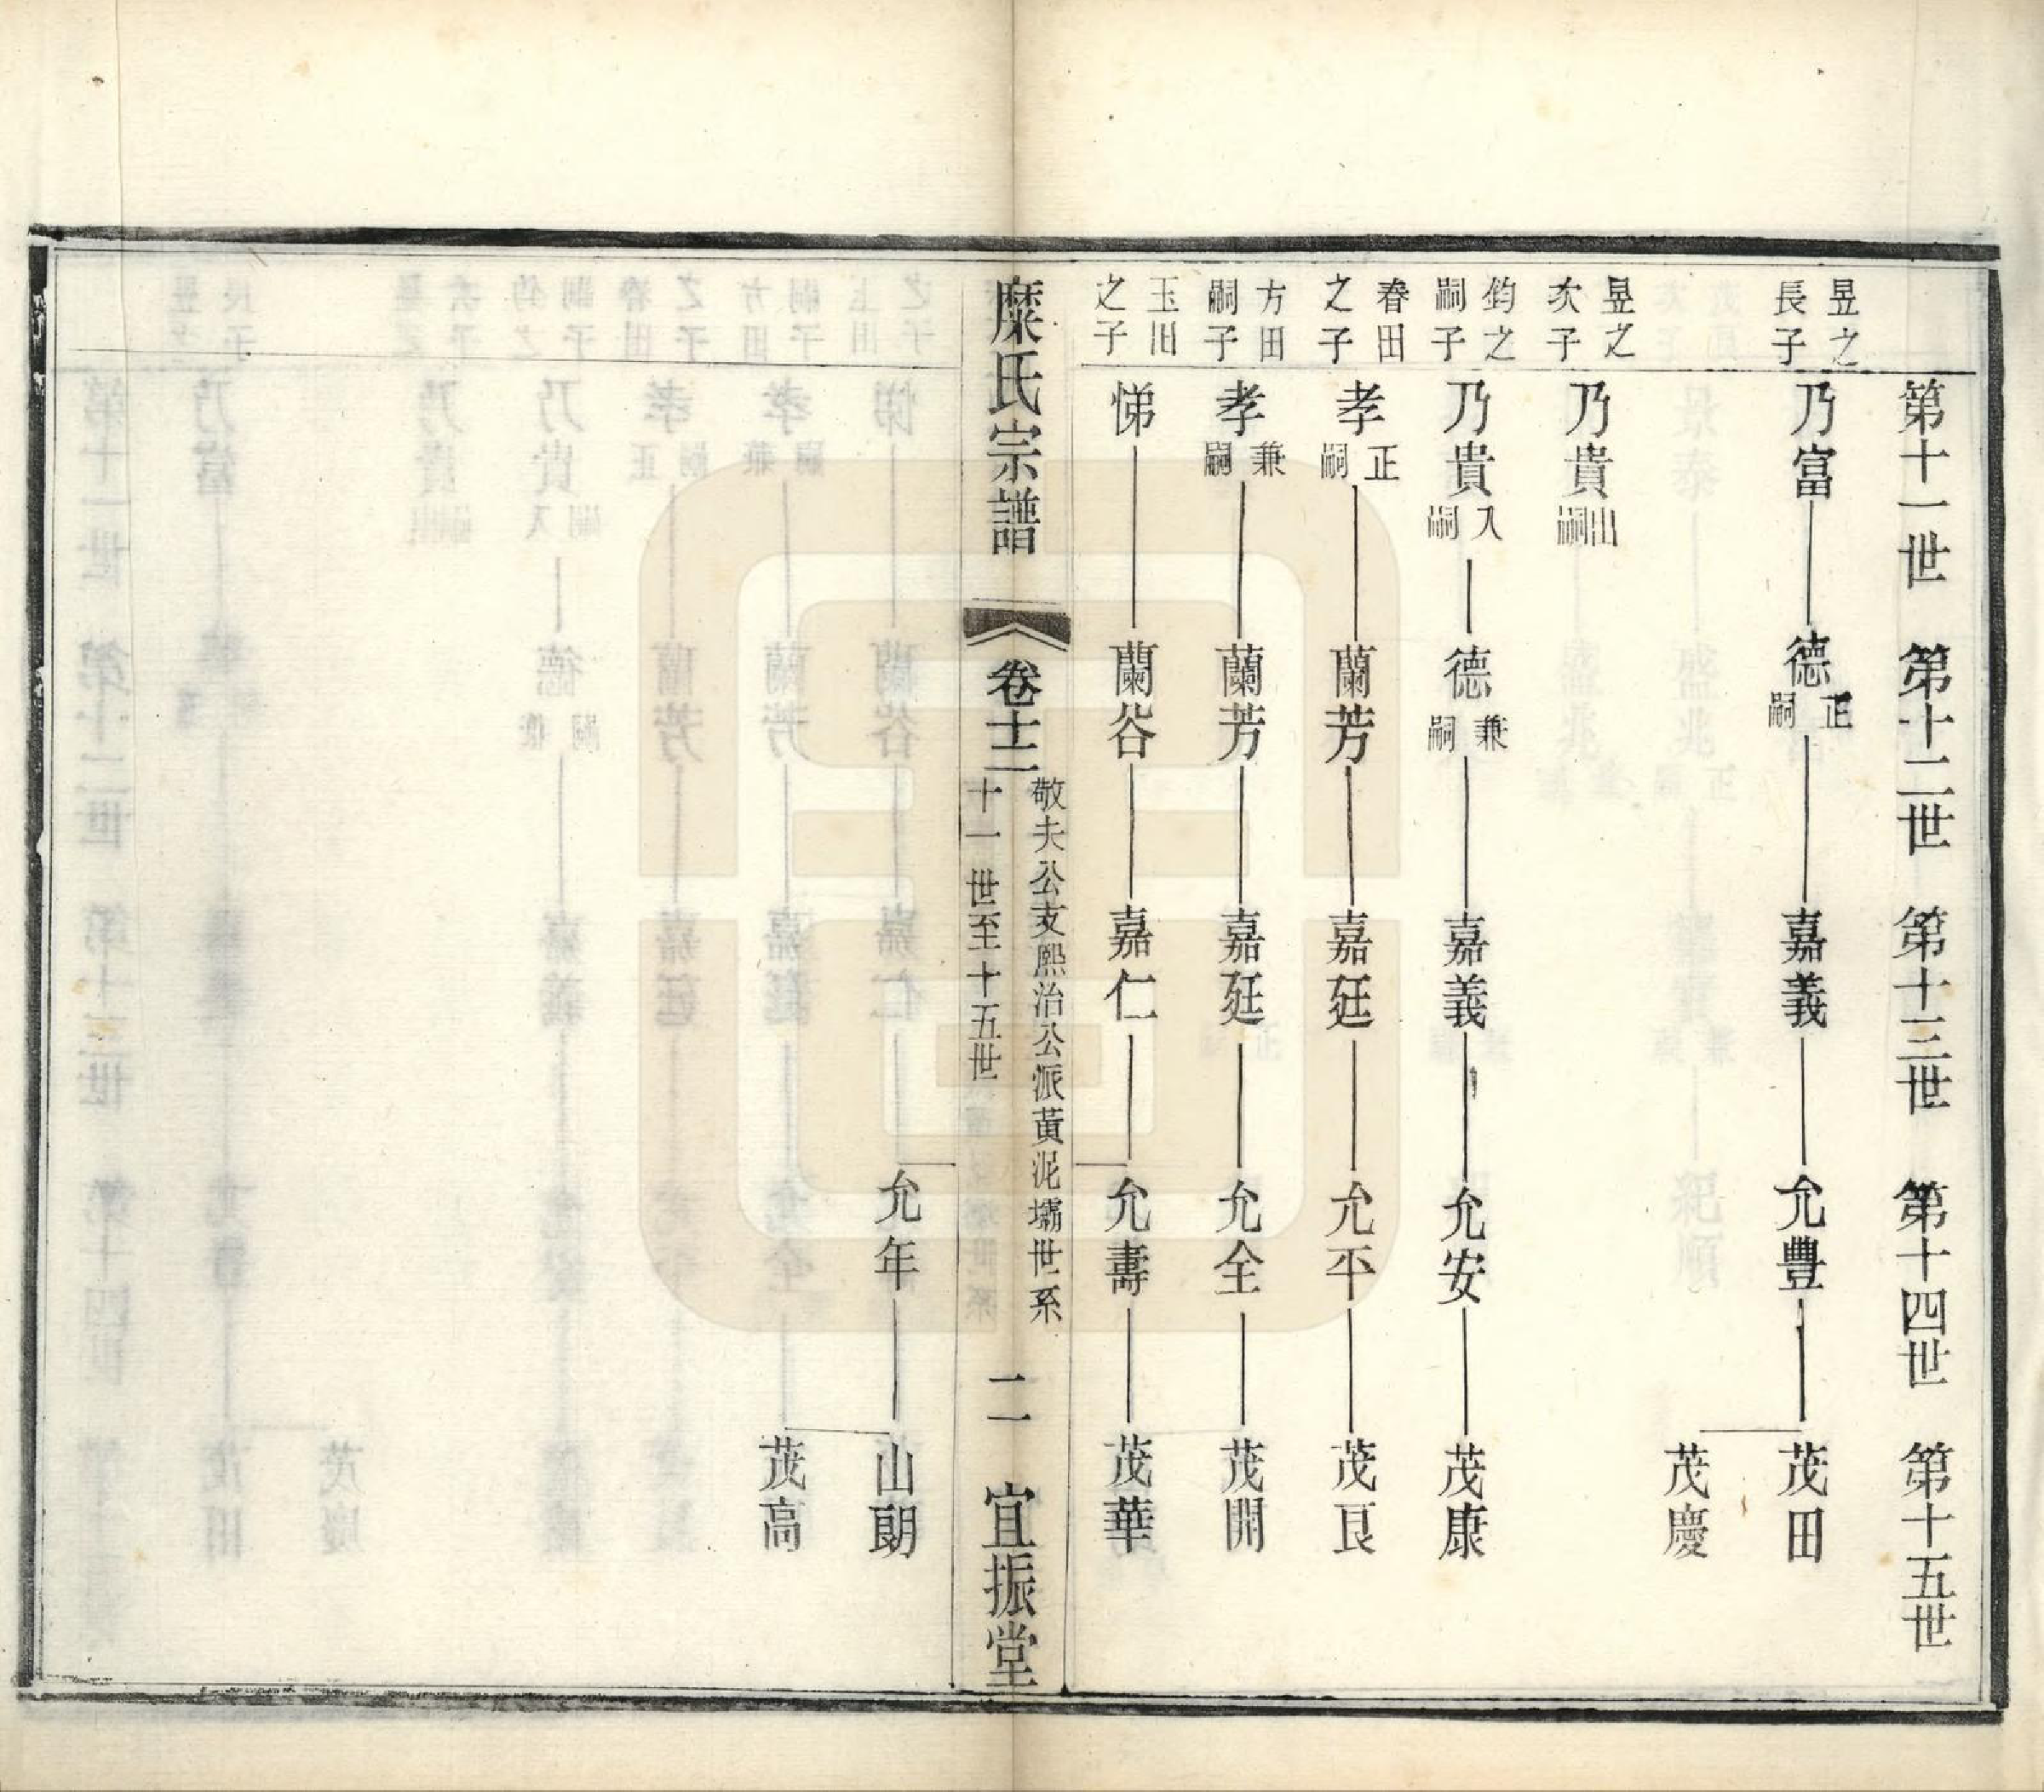 第十一世 第十二世 第十三世 第十四世 第十五世
昱之長子 乃富 德 正嗣 嘉義 允豐 茂田
茂慶
昱之次子 乃貴 出嗣
鈞之嗣子 乃貴 入嗣 德 兼嗣 嘉義 允安 茂康
春田之子 孝 正嗣 蘭芳 嘉廷 允平 茂良
方田嗣子 孝 兼嗣 蘭芳 嘉廷 允全 茂開
玉田之子 悌 蘭谷 嘉仁 允壽 茂華
糜氏宗譜 卷十二 敬夫公支熙治公派黃泥壩世系 十一世至十五世 二 宜振堂
允年 山朗
茂高